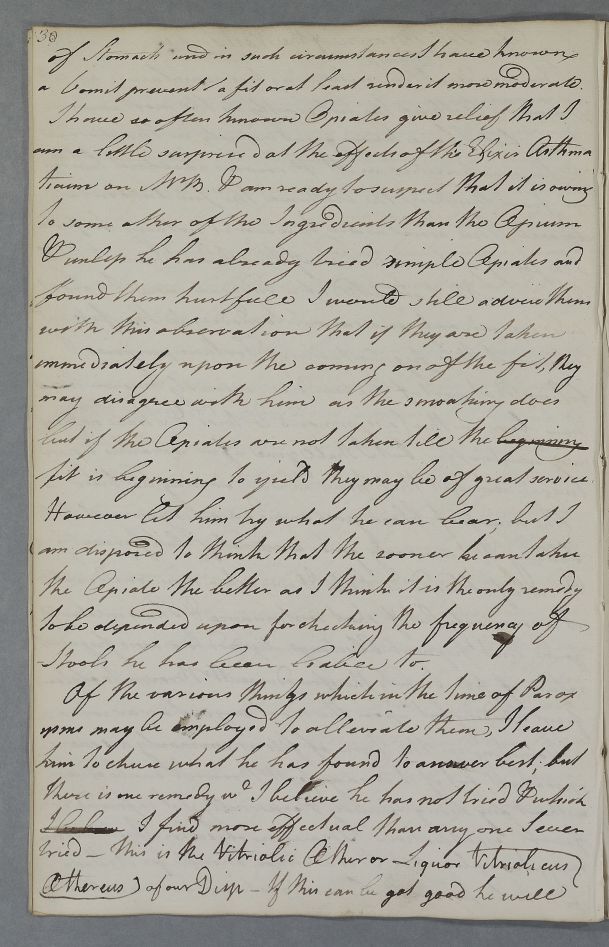 30
of Stomach and in such circumstances I have known
a Vomit prevent a fit or at least render it more moderate.
I have so often known Opiates give relief that I
am a little surprised at the effects of the Elixir Asthma
ticum on Mr B. & am ready to suspect that it is owing
to some other of the Ingredients than the Opium
& unless he has already tried simple Opiates and
found them hurtfull I would still advise them
with this observation that if they are taken
immediately upon the coming on of the fit, they
may disagree with him as the smoaking does
but if the Opiates are not taken till the beginning
fit is beginning to yield they may be of great service.
However let him try what he can bear; but I
am disposed to think that the sooner he can take
the Opiate the better as I think it is the only remedy
to be depended upon for checking the frequency of
Stools he has been liable to.
Of the various things which in the time of Parox
ysms may be employed to alleviate them, I leave
him to chuse what he has found to answer best; but
there is one remedy wc I believe he has not tried & which
I find more effectual than any one I ever
tried – this is the Vitriolic Æther or Liquor Vitriolicus
Æthereus) of our Disp – If this can be got good he will